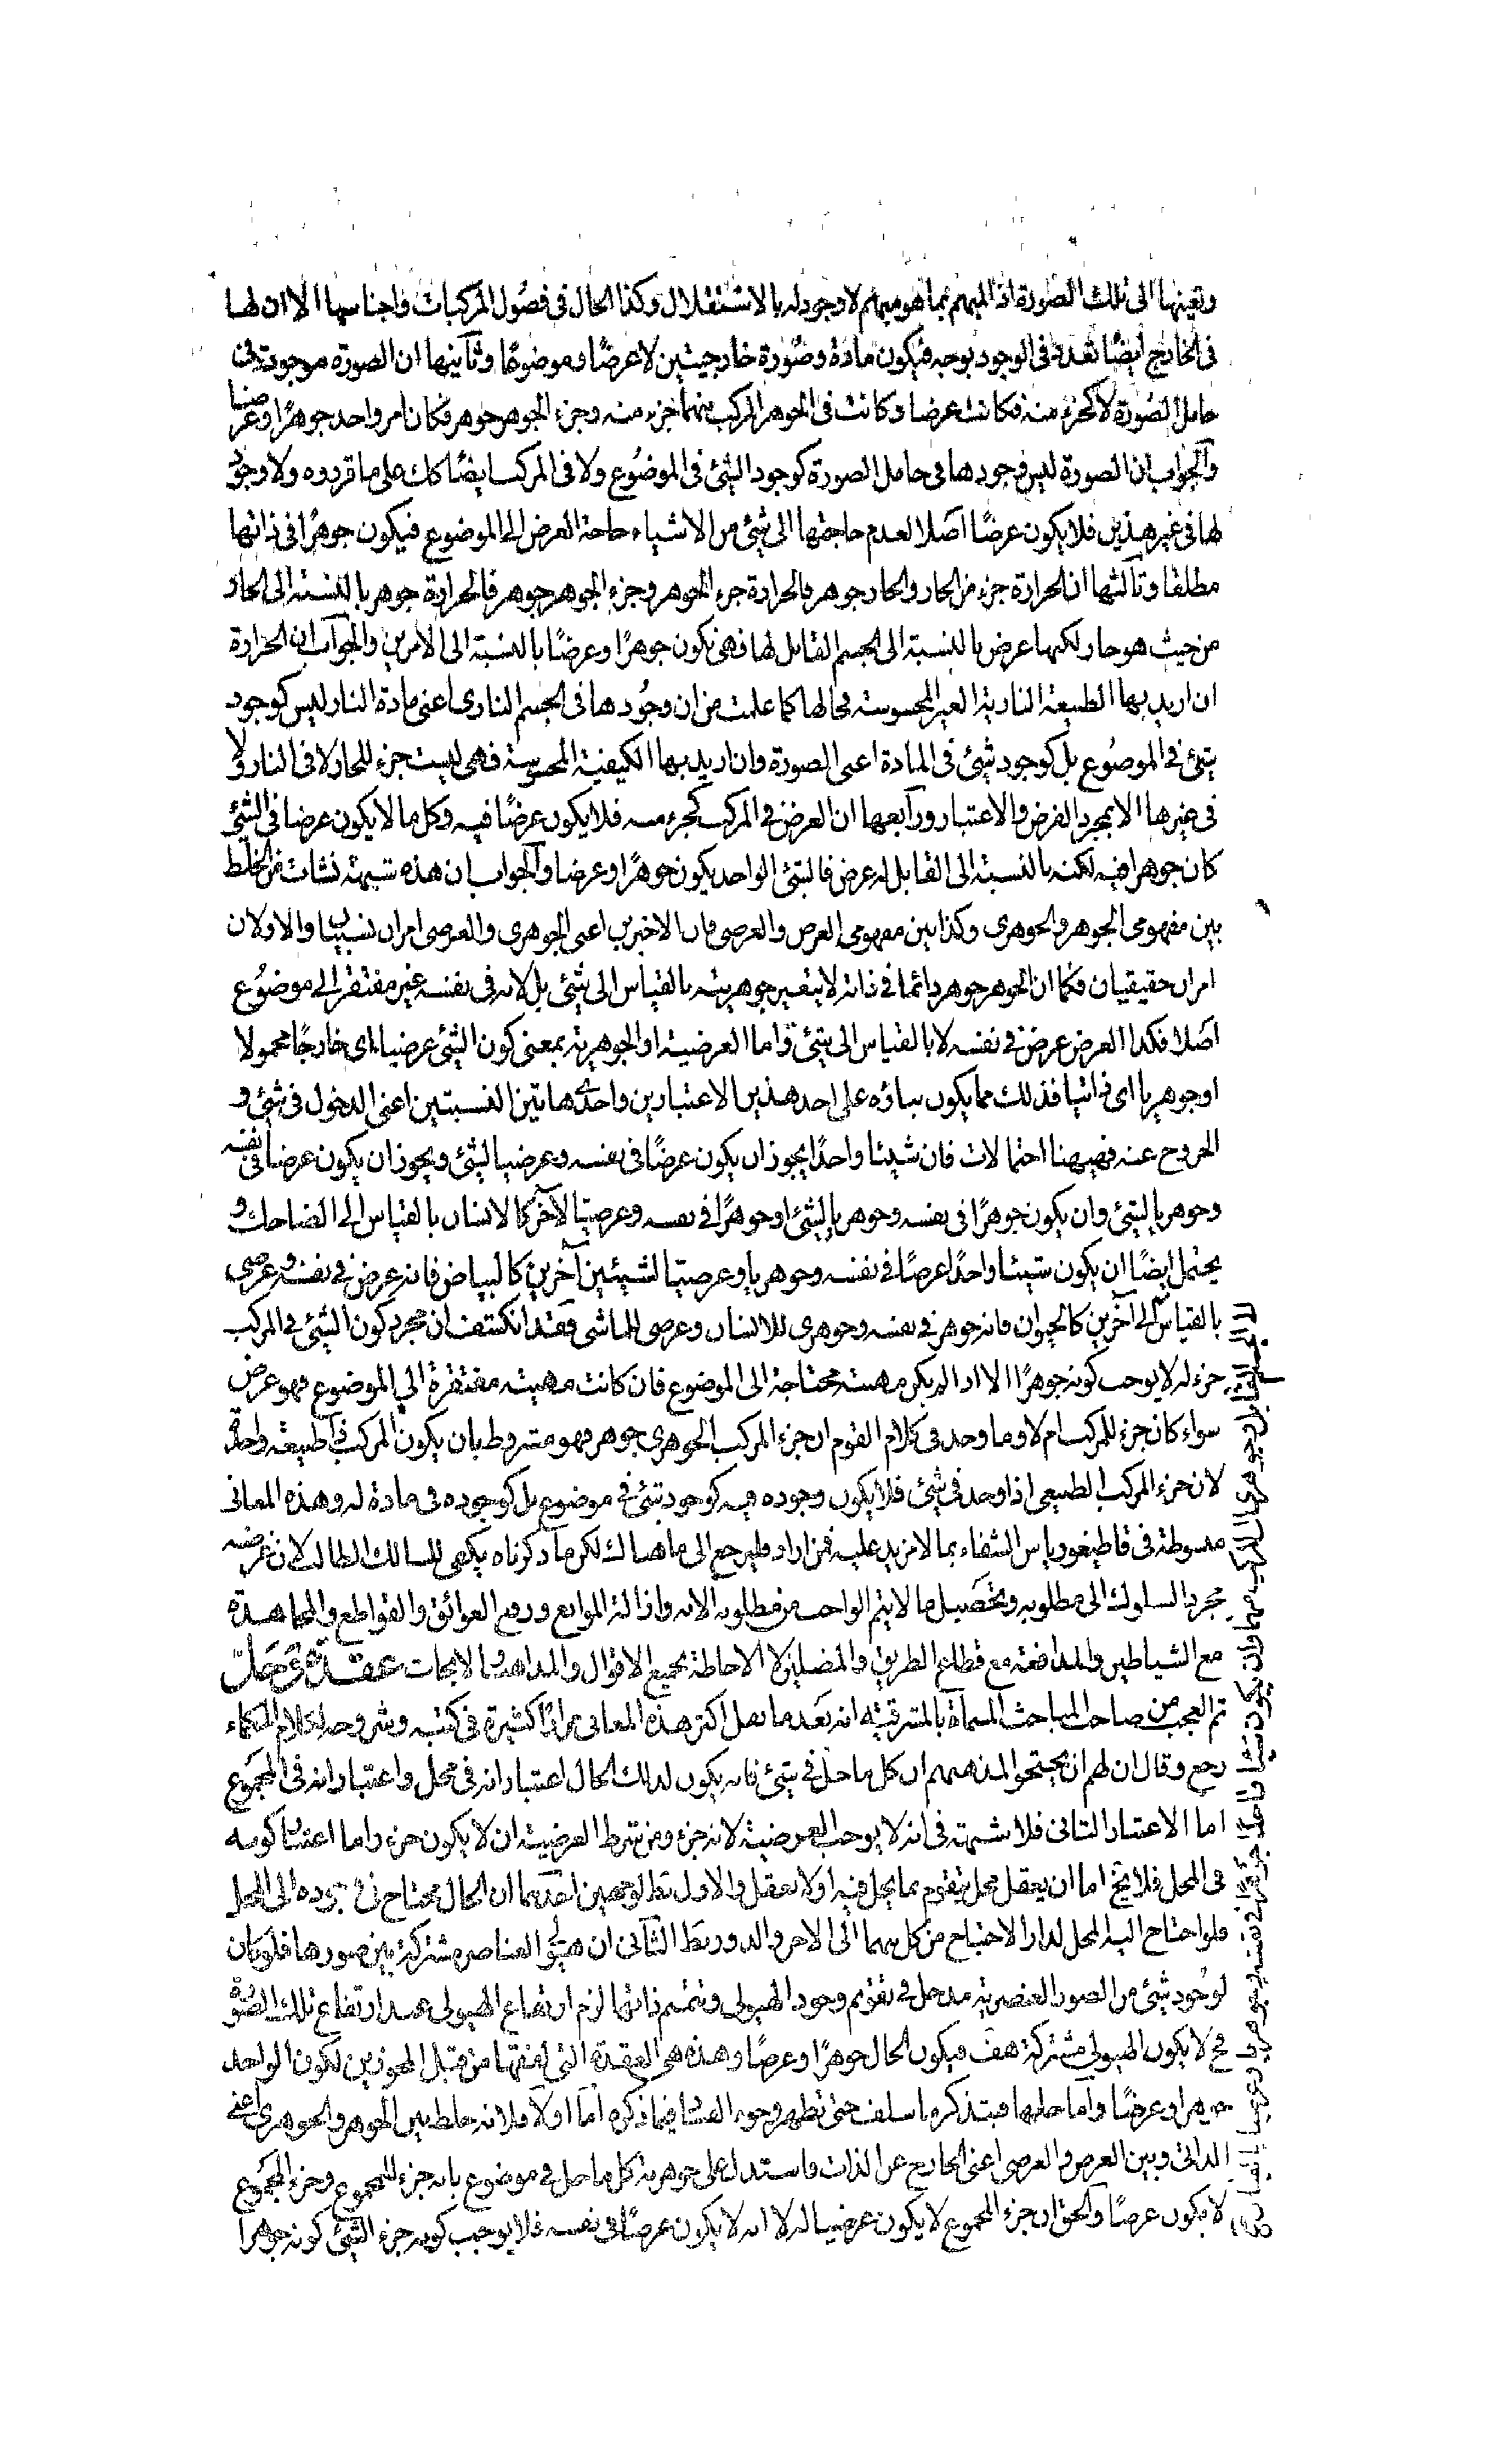 وتعينها الى تلك الصورة اذ المبهم بما هو مبهم لا وجود له بالاستقلال وكذا الحال فى فصول المركبات واجناسها الا ان لها
فى الخارج ايضًا تعددا فى الوجود بوجه فيكون مادة وصورة خارجيتين لا عرضًا وموضوعًا وثانيها ان الصورة موجودة فى
حامل الصورة لا كجزء منه فكانت عرضا وكانت فى الجوهر المركب منهما جزء منه وجزء الجوهر جوهر فكان امر واحد جوهرًا وعرضا
والجواب ان الصورة ليس وجودها فى حامل الصورة كوجود الشئ فى الموضوع ولا فى المركب ايضًا كك على ما قرروه ولا وجود
لها فى غير هذين فلا يكون عرضًا اصلا لعدم حاجتها الى شئ من الاشياء حاجة العرض الى الموضوع فيكون جوهرًا فى ذاتها
مطلقا وثالثها ان الحرارة جزء من الحار والحار جوهر فالحرارة جزء الجوهر وجزء الجوهر جوهر فالحرارة جوهر بالنسبة الى الحار
من حيث هو حار لكنها عرض بالنسبة الى الجسم القابل لها فهى تكون جوهرًا وعرضًا بالنسبة الى الامرين والجواب ان الحرارة
ان اريد بها الطبيعة النارية الغير المحسوسة فحالها كما علمت من ان وجودها فى الجسم النارى اعنى مادة النار ليس كوجود
شئ فى الموضوع بل كوجود شئ فى المادة اعنى الصورة وان اريد بها الكيفية المحسوسة فهى ليست جزء للحار لا فى النار ولا
فى غيرها الا بمجرد الفرض والاعتبار ورابعها ان العرض فى المركب كجزء منه فلا يكون عرضًا فيه وكل ما لا يكون عرضا فى الشئ
كان جوهرا فيه لكنه بالنسبة الى القابل له عرض فالشئ الواحد يكون جوهرًا وعرضا والجواب ان هذه شبهة نشأت من الخلط
بين مفهومى الجوهر والجوهرى وكذا بين مفهومى العرض والعرضى فان الاخيرين اعنى الجوهرى والعرضى امران نسبيان والاولان
امران حقيقيان فكما ان الجوهر جوهر دائما فى ذاته لا يتغير جوهريته بالقياس الى شئ بل لانه فى نفسه غير مفتقر الى موضوع
اصلا فكذا العرض عرض فى نفسه لا بالقياس الى شئ واما العرضية او الجوهرية بمعنى كون الشئ عرضيا اى خارجًا محمولا
او جوهريا اى ذاتيا فذلك مما يكون بناؤه على احد هذين الاعتبارين واحدى هاتين النسبتين اعنى الدخول فى شئ و
الخروج عنه فهيهنا احتمالات فان شيئا واحدًا يجوز ان يكون عرضًا فى نفسه وعرضيا لشئ ويجوز ان يكون عرضا فى نفسه
وجوهريا لشئ وان يكون جوهرًا فى نفسه وجوهريا لشئ او جوهرًا فى نفسه وعرضيًا لآخر كالانسان بالقياس الى الضاحك و
يحتمل ايضًا ان يكون شيئا واحدًا عرضًا فى نفسه وجوهريا وعرضيا لشيئين آخرين كالبياض فانه عرض فى نفسه وعرضى
بالقياس الى آخرين كالحيوان فانه جوهر فى نفسه وجوهرى للانسان وعرضى للماشى فقد انكشف ان مجرد كون الشئ فى المركب
جزء له لا يوجب كونه جوهرًا الا اذا لم يكن مهيته محتاجة الى الموضوع فان كانت مهيته مفتقرة الى الموضوع فهو عرض
سواء كان جزء للمركب ام لا وما وجد فى كلام القوم ان جزء المركب الجوهرى جوهر فهو مشروط بان يكون المركب ذا طبيعة واحدة
لان جزء المركب الطبيعى اذا وجد فى شئ فلا يكون وجوده فيه كوجود شئ فى موضوع بل كوجوده فى مادة له وهذه المعانى
مبسوطة فى قاطيغورياس الشفاء بما لا مزيد عليه فمن اراد فليرجع الى ما هناك لكن ما ذكرناه يكفى للسالك الطالب لان غرضه
مجرد السلوك الى مطلوبه وتحصيل ما لا يتم الواجب من مطلوبه الا به وازالة الموانع ورفع العوائق والقواطع والمجاهدة
مع الشياطين والمدافعة مع قطاع الطريق والمضلين لا الاحاطة بجميع الاقوال والمذاهب والابحاث عقدة وحلّ
ثم العجب من صاحب المباحث المسماة بالمشرقية انه بعد ما نقل اكثر هذه المعانى مرارًا كثيرة فى كتبه وشروحه لكلام الحكماء
رجع وقال ان لهم ان يحتجوا لمذهبهم ان كل ما حل فى شئ فانه يكون لذلك الحال اعتبار انه فى محل واعتبار انه فى المجموع
اما الاعتبار الثانى فلا شبهة فى انه لا يوجب العرضية لانه جزء ومن شرط العرضية ان لا يكون جزء واما اعتبار كونه
فى المحل فلا يخ اما ان يعقل محل يتقوم بما يحل فيه او لا يعقل والاول بط لوجهين احدهما ان الحال محتاج فى وجوده الى المحل
فلو احتاج اليه المحل لدار الاحتياج من كل منهما الى الاخر والدور بط الثانى ان هيولى العناصر مشتركة بين صورها فلو كان
لوجود شئ من الصور العنصرية مدخل فى تقويم وجود الهيولى وتتميم ذاتها لزم ارتفاع الهيولى عند ارتفاع تلك الصورة
فح لا يكون الهيولى مشتركة هف فيكون الحال جوهرًا وعرضًا وهذه هى العقدة التى لفقتها من قبل المجوزين لكون الواحد
جوهرا وعرضًا وأما حلها فبتذكره ما سلف حتى تظهر وجوه الفساد فيما ذكره أما اولا فلانه خلط بين الجوهر والجوهرى اعنى
الذاتى وبين العرض والعرضى اعنى الخارج عن الذات فاستدل على جوهرية كل ما حل فى موضوع بانه جزء للمجموع وجزء المجموع
لا يكون عرضًا والحق ان جزء المجموع لا يكون عرضيا له لا انه لا يكون عرضًا فى نفسه فلا يوجب كونه جزء الشئ كونه جوهرا